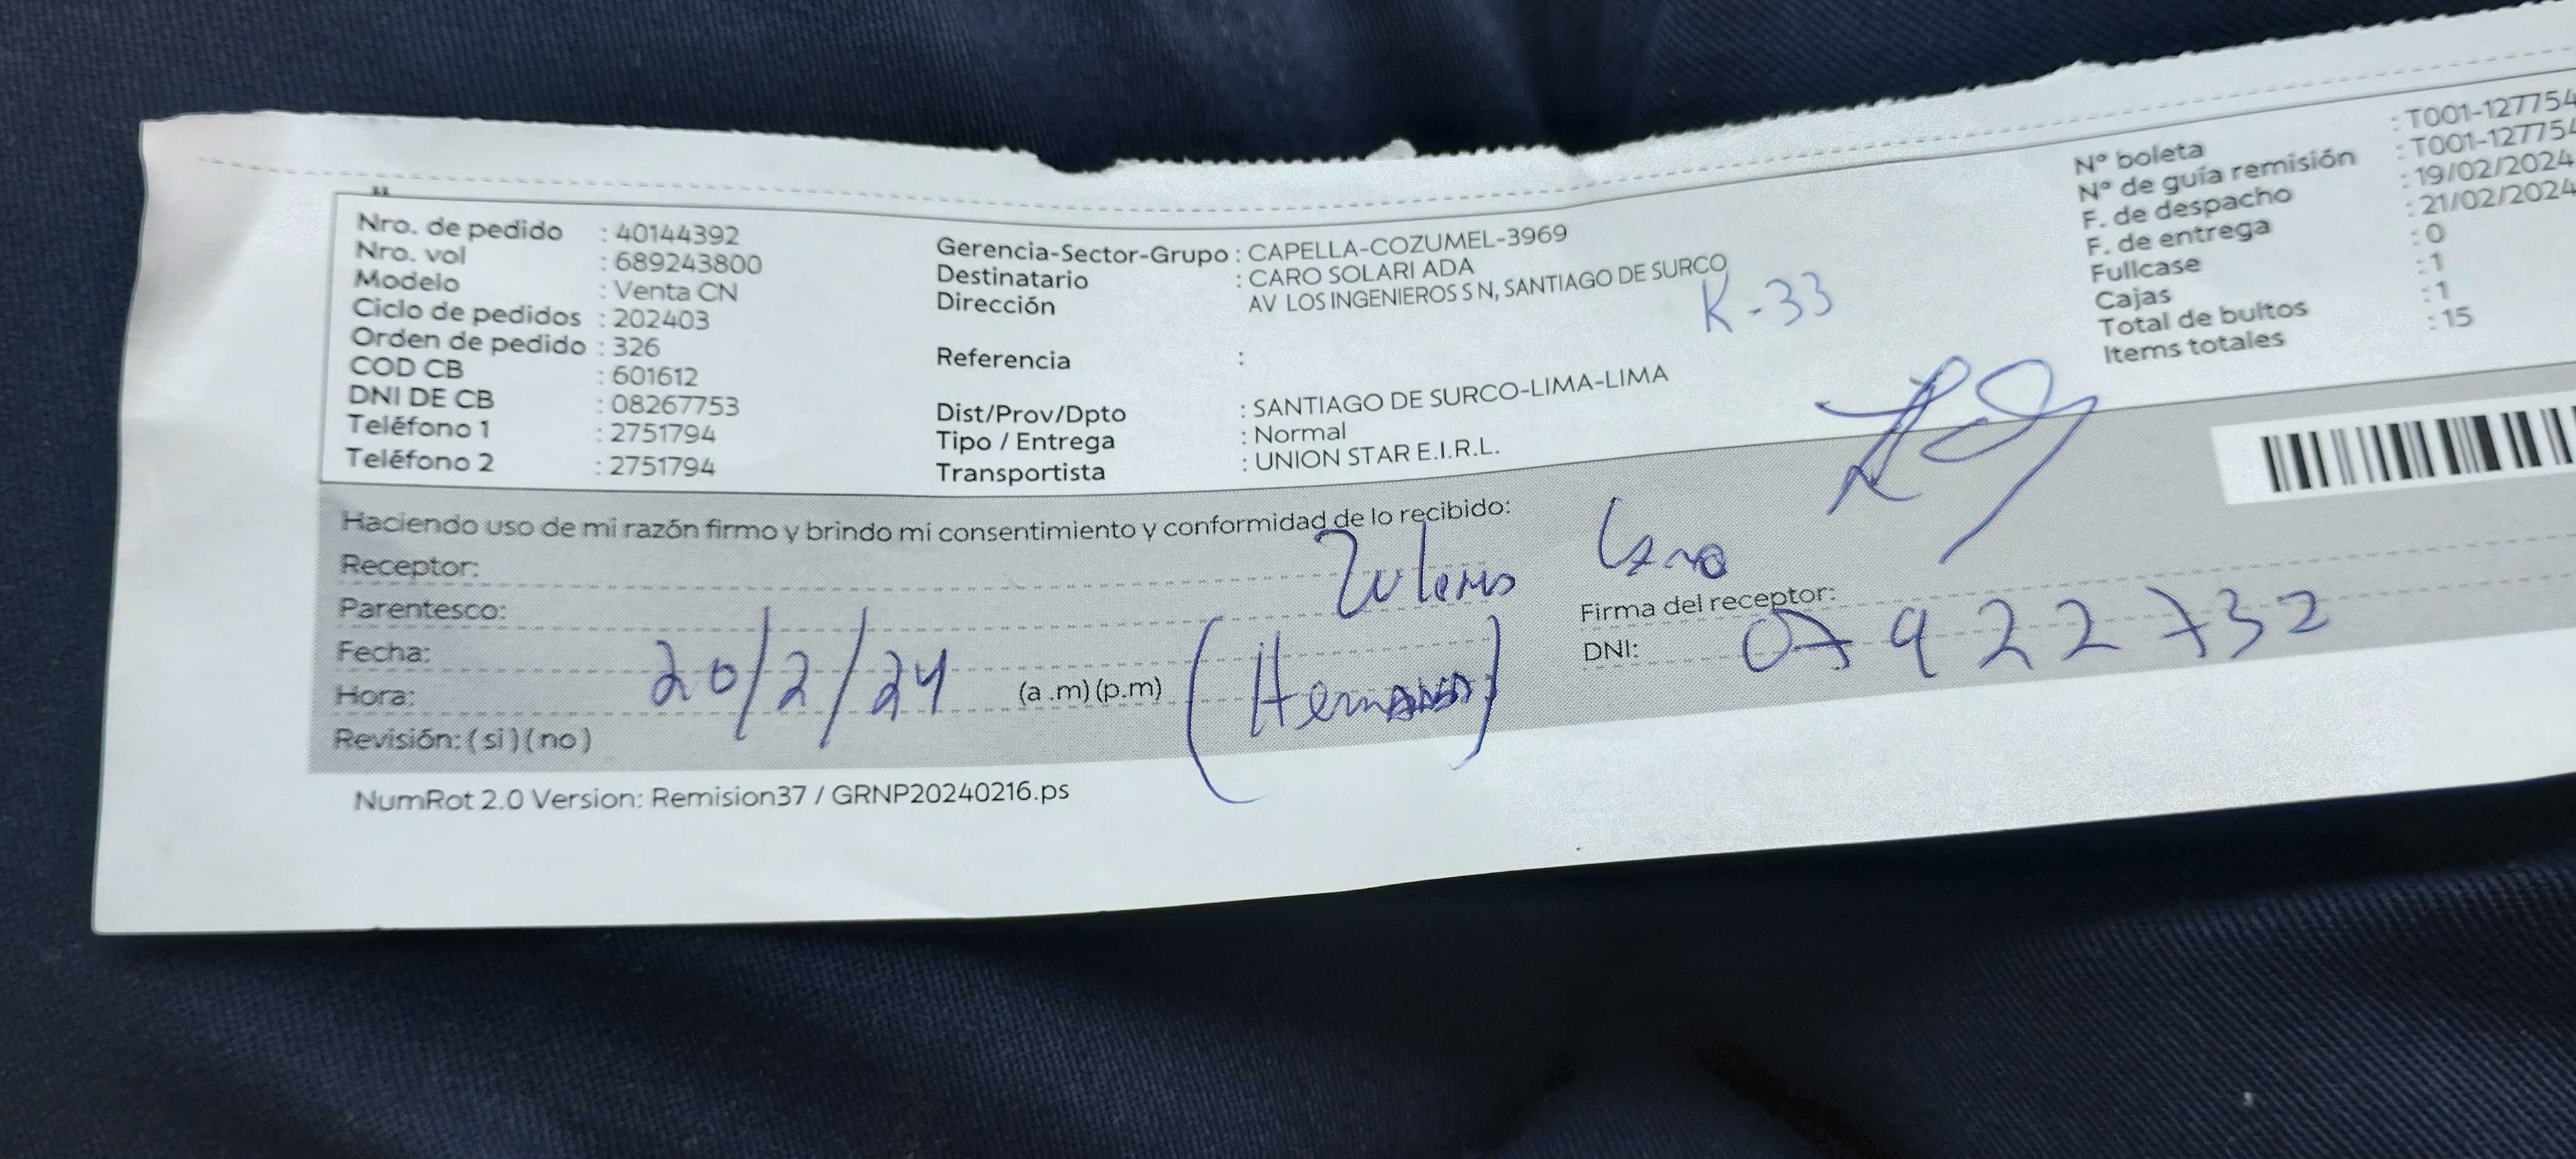 Nro. de pedido : 40144392
Nro. vol : 689243800
Modelo : Venta CN
Ciclo de pedidos : 202403
Orden de pedido : 326
COD CB : 601612
DNI DE CB : 08267753
Teléfono 1 : 2751794
Teléfono 2 : 2751794
Gerencia-Sector-Grupo : CAPELLA-COZUMEL-3969
Destinatario : CARO SOLARI ADA
Dirección AV LOS INGENIEROS S N, SANTIAGO DE SURCO
K-33
Referencia :
Dist/Prov/Dpto : SANTIAGO DE SURCO-LIMA-LIMA
Tipo / Entrega : Normal
Transportista : UNION STAR E.I.R.L.
N° boleta : T001-127754
N° de guía remisión : T001-127754
F. de despacho : 19/02/2024
F. de entrega : 21/02/2024
Fullcase : 0
Cajas : 1
Total de bultos : 1
Items totales : 15
Haciendo uso de mi razón firmo y brindo mi consentimiento y conformidad de lo recibido:
Receptor: Caro
Parentesco:
Fecha: 20/2/24
Hora: (a .m) (p.m)
Revisión: ( si ) ( no )
Firma del receptor:
DNI: 07922732
NumRot 2.0 Version: Remision37 / GRNP20240216.ps